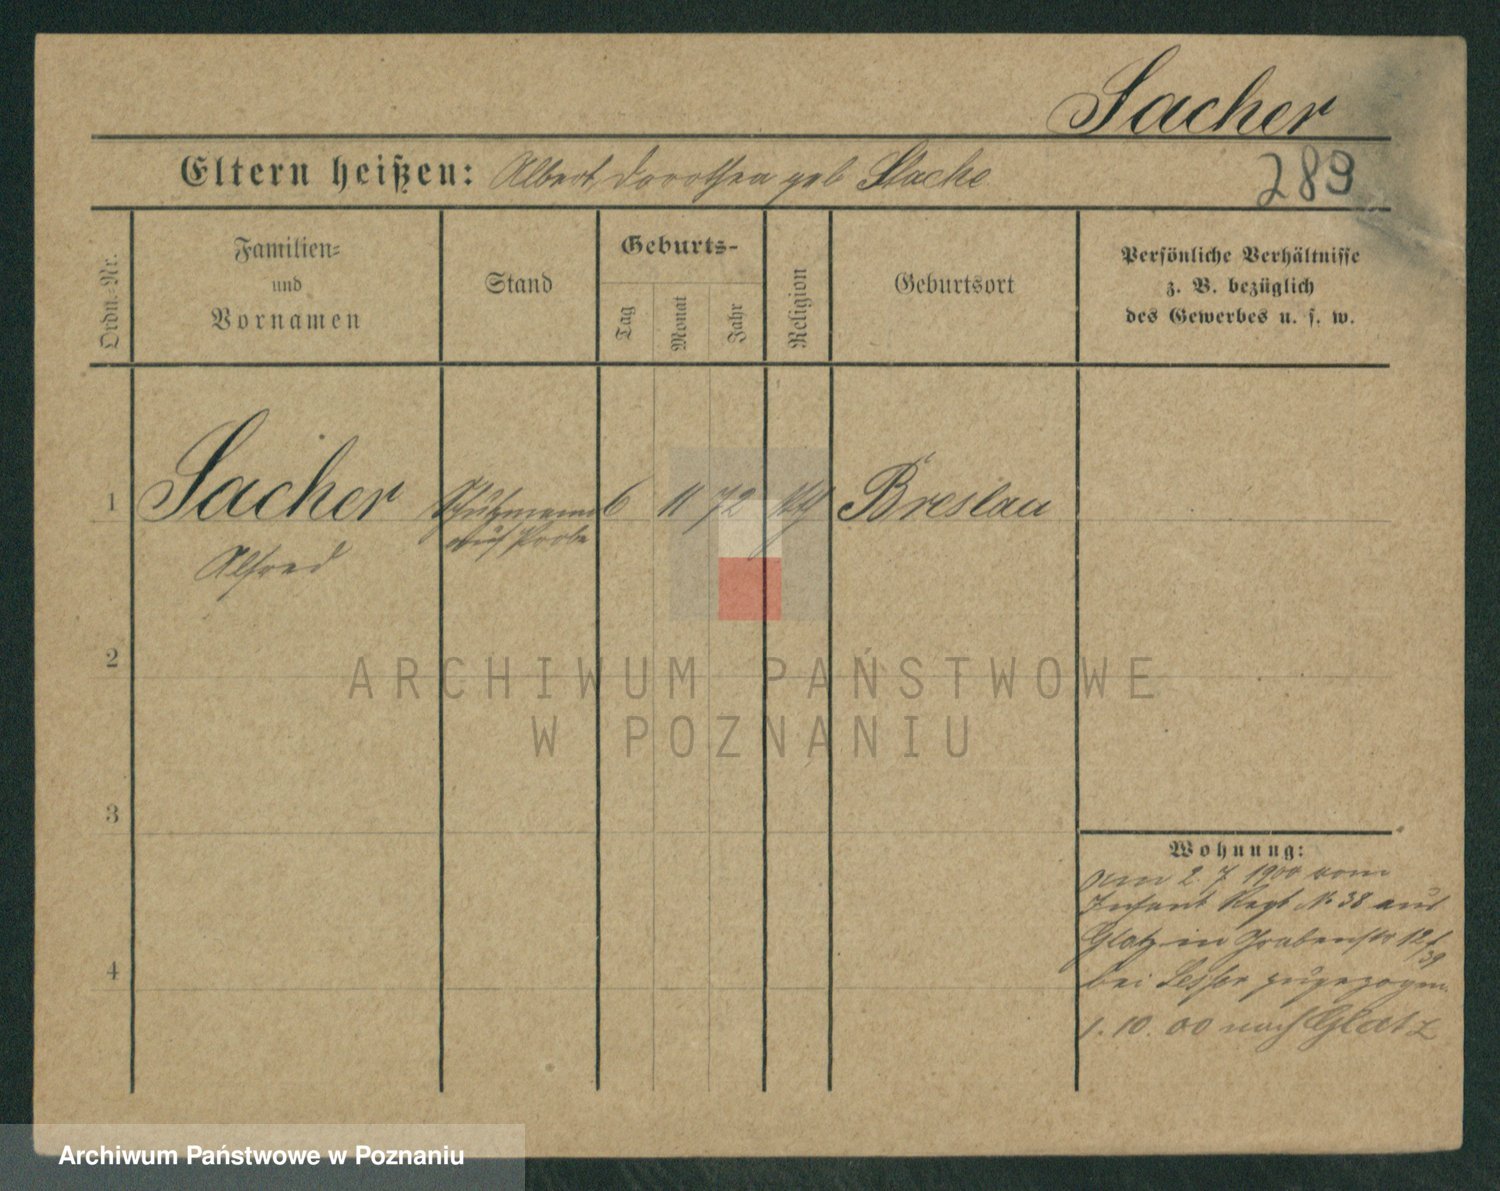 Sacher
Eltern heißen: Albert, Dorothea geb Stache
289
Ordn.-Nr.
Familien-
und
Vornamen
Stand
Geburts-
Tag
Monat
Jahr
Religion
Geburtsort
Persönliche Verhältnisse
z. B. bezüglich
des Gewerbes u. s. w.
1 Sacher Schutzmann 6 11 72 Breslau
auf Probe
Alfred
2
3
4
ARCHIWUM PAŃSTWOWE
W POZNANIU
Wohnung:
am 2. 7. 1900 vom
Infant Regt No 38 aus
Glatz in Grabenstr 12
bei zugezogen
1. 10. 00 nach Glatz
Archiwum Państwowe w Poznaniu